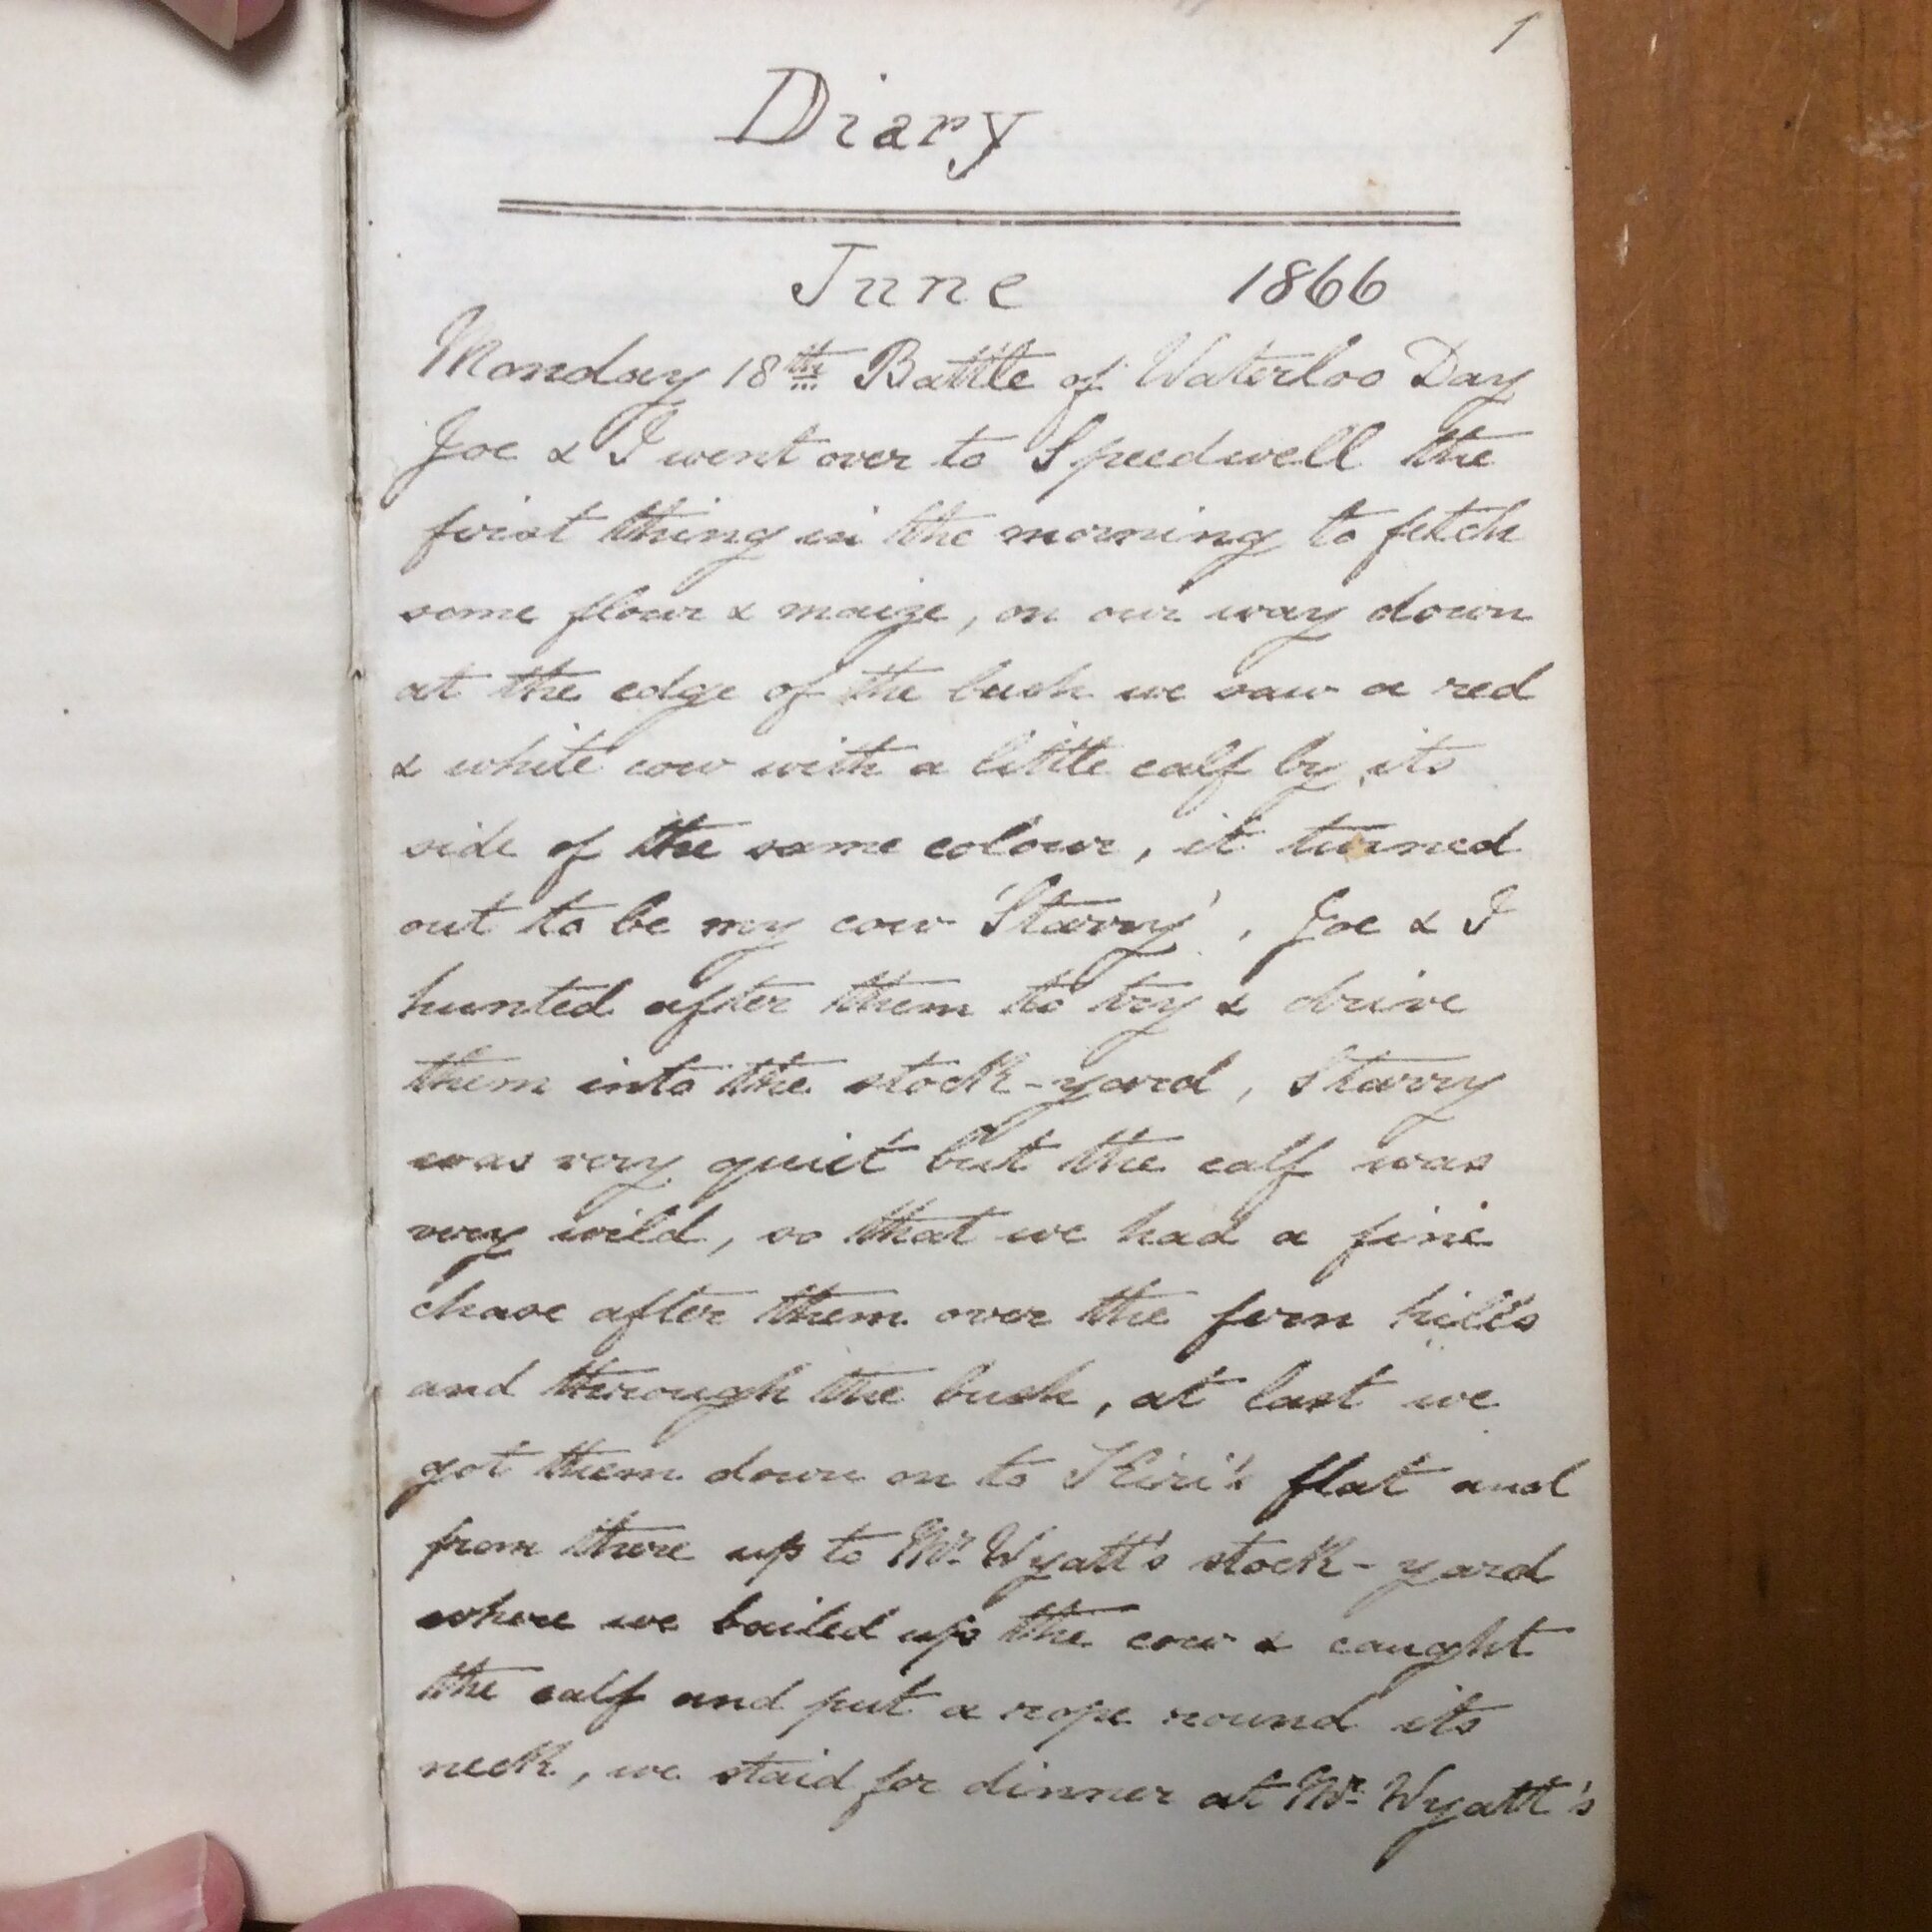 1
Diary
June 1866
Monday 18th Battle of Waterloo Day
Joe & I went over to Speedwell the
first thing in the morning to fetch
some flour & maize, on our way down
at the edge of the bush we saw a red
& white cow with a little calf by its
side of the same colour, it turned
out to be my cow 'Starry', Joe & I
hunted after them to try & drive
them into the stock-yard, Starry
was very quiet but the calf was
very wild, so that we had a fine
chase after them over the fern hills
and through the bush, at last we
got them down on to Kiri's flat and
from there up to Mr. Wyatt's stock-yard
where we bailed up the cow & caught
the calf and put a rope round its
neck, we staid for dinner at Mr. Wyatt's